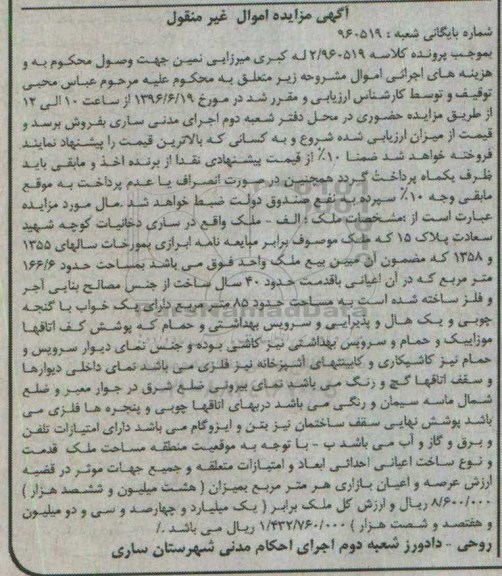 آگهی مزایده اموال غیر منقول
شماره بایگانی شعبه : ۹۶۰۵۱۹
بموجب پرونده کلاسه ۲/۹۶۰۵۱۹ له کبری میرزایی نمین جهت وصول محکوم به و
هزینه های اجرائی اموال مشروحه زیر متعلق به محکوم علیه مرحوم عباس محبی
توقیف و توسط کارشناس ارزیابی و مقرر شد در مورخ ۱۳۹۶/۶/۱۹ از ساعت ۱۰ الی ۱۲
از طریق مزایده حضوری در محل دفتر شعبه دوم اجرای مدنی ساری بفروش برسد و
قیمت از میزان ارزیابی شده شروع و به کسانی که بالاترین قیمت را پیشنهاد نمایند
فروخته خواهد شد ضمنا ۱۰٪ از قیمت پیشنهادی نقدا از برنده اخذ و مابقی باید
ظرف یکماه پرداخت گردد همچنین در صورت انصراف یا عدم پرداخت به موقع
مابقی وجه ۱۰٪ سپرده به نفع صندوق دولت ضبط خواهد شد .مال مورد مزایده
عبارت است از :مشخصات ملک : الف - ملک واقع در ساری دخانیات کوچه شهید
سعادت پلاک ۱۵ که ملک موصوف برابر مبایعه نامه ابرازی بمورخات سالهای ۱۳۵۵
و ۱۳۵۸ که مضمون آن مبین بیع ملک واحد فوق می باشد بمساحت حدود ۱۶۶/۶
متر مربع که در آن اعیانی باقدمت حدود ۴۰ سال ساخت از جنس مصالح بنایی آجر
و فلز ساخته شده است به مساحت حدود ۸۵ متر مربع دارای یک خواب با گنجه
چوبی و یک هال و پذیرایی و سرویس بهداشتی و حمام که پوشش کف اتاقها
موزاییک و حمام و سرویس بهداشتی نیز کاشی بوده و جنس نمای دیوار سرویس و
حمام نیز کاشیکاری و کابینتهای آشپزخانه نیز فلزی می باشد نمای داخلی دیوارها
و سقف اتاقها گچ و رنگ می باشد نمای بیرونی ضلع شرق در جوار معبر و ضلع
شمال ماسه سیمان و رنگی می باشد دربهای اتاقها چوبی و پنجره ها فلزی می
باشد پوشش نهایی سقف ساختمان نیز بتن و ایزوگام می باشد دارای امتیازات تلفن
و برق و گاز و آب می باشد ب - با توجه به موقعیت منطقه مساحت ملک قدمت
و نوع ساخت اعیانی احداثی ابعاد و امتیازات متعلقه و جمیع جهات موثر در قضیه
ارزش عرصه و اعیان بازاری هر متر مربع بمیزان ( هشت میلیون و ششصد هزار )
۸/۶۰۰/۰۰۰ ریال و ارزش کل ملک برابر ( یک میلیارد و چهارصد و سی و دو میلیون
و هفتصد و شصت هزار ) ۱/۴۳۲/۷۶۰/۰۰۰ ریال می باشد ./
روحی - دادورز شعبه دوم اجرای احکام مدنی شهرستان ساری